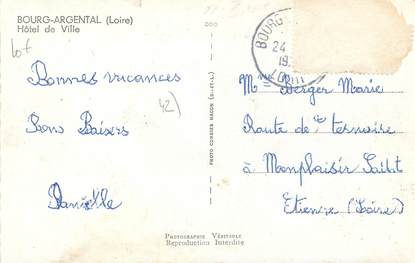 BOURG-ARGENTAL (Loire)
Hôtel de Ville
lot
BOURG
24
19
LOIRE
Bonnes vacances
42)
Bons Baisers
Danielle
PHOTO COMBIER MACON (S.-ET-L.)
Mme Berger Marie
Route de
à Monplaisir Saint
Etienne (Loire)
PHOTOGRAPHIE VÉRITABLE
Reproduction Interdite